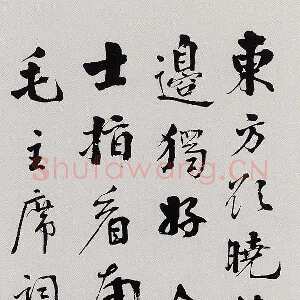 東方欲曉
邊獨好
士指看南
毛主席詞
Shufawang.CN